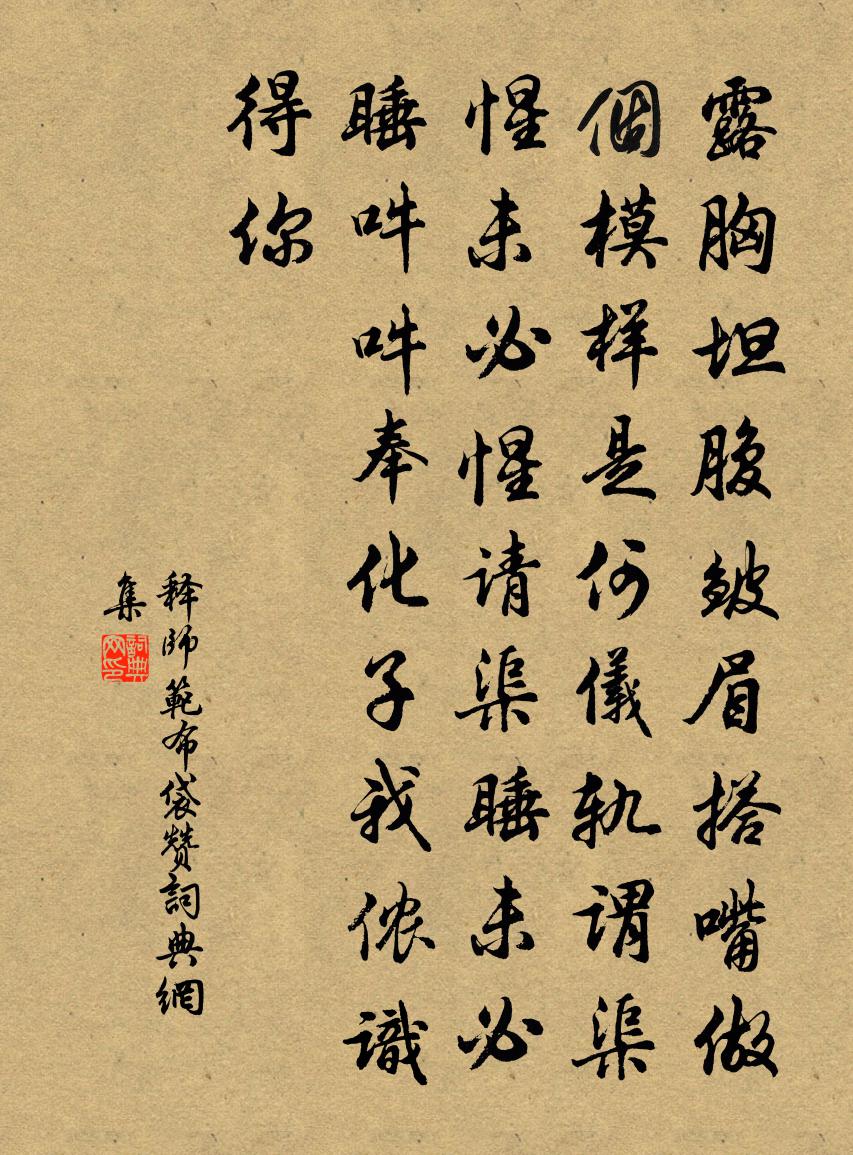 露胸坦腹皺眉搭嘴做
個模样是何儀軌謂渠
惺未必惺请渠睡未必
睡吽吽奉化子我侬識
得你
释師範布袋赞詞典網
集
詞典
网印